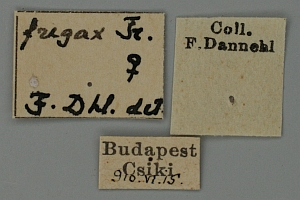 fugax Tr.
♀
F. Dhl. det.
Coll.
F. Dannehl
Budapest
Csiki
910.VI.15.